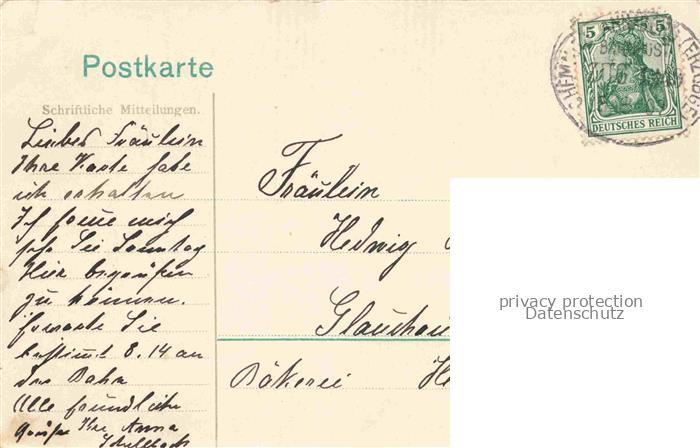 Postkarte
Schriftliche Mitteilungen.
5 5
DEUTSCHES REICH
Liebes Fräulein
Ihre Karte habe
ich erhalten
Ich freue mich
Sie Sonntag
Hier begrüßen
zu können.
erwarte Sie
bestimmt 8.14 an
der Bahn
Alle freundliche
Grüße Ihre Anna
Fräulein
Hedwig
Glauchau
Bäkerei
privacy protection
Datenschutz